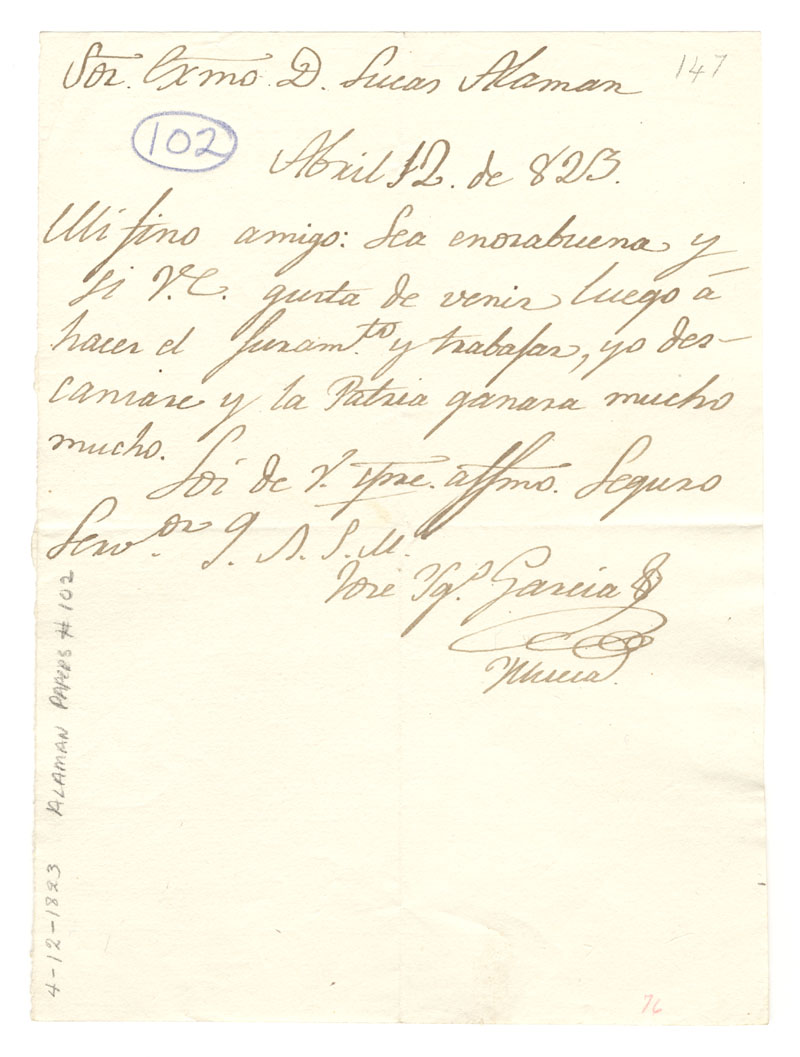 Sor. Exmo. D. Lucas Alaman
147
102
Abril 12. de 823.
Mi fino amigo: Sea enorabuena y
si V.E. gusta de venir luego á
hacer el Juramto. y trabajar, yo des-
cansare y la Patria ganara mucho
mucho.
Soi de V. spre. affmo. Seguro
Servor. Q. B. S. M.
Jose Ygo. Garcia
Yllueca.
4-12-1823 ALAMAN PAPERS # 102
76